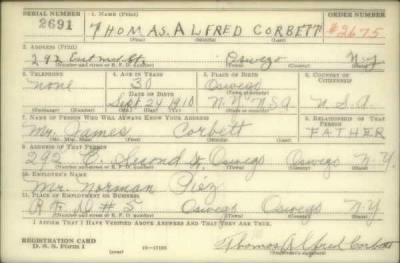 SERIAL NUMBER 1. NAME (Print) ORDER NUMBER
2691 THOMAS. ALFRED CORBETT #2675
(First) (Middle) (Last)
2. ADDRESS (Print)
292 East Oswego N.Y
(Number and street or R. F. D. number) (Town) (County) (State)
3. TELEPHONE 4. AGE IN YEARS 5. PLACE OF BIRTH 6. COUNTRY OF CITIZENSHIP
none 30 Oswego
DATE OF BIRTH (Town or county)
Sept. 24 1910 N.Y. USA U.S.A
(Exchange) (Number) (Mo.) (Day) (Yr.) (State or country)
7. NAME OF PERSON WHO WILL ALWAYS KNOW YOUR ADDRESS 8. RELATIONSHIP OF THAT PERSON
Mr. James Corbett FATHER
(Mr., Mrs., Miss) (First) (Middle) (Last)
9. ADDRESS OF THAT PERSON
292 E. Second St. Oswego Oswego N.Y.
(Number and street or R. F. D. number) (Town) (County) (State)
10. EMPLOYER'S NAME
Mr. Norman Piez
11. PLACE OF EMPLOYMENT OR BUSINESS
R.F.D #5 Oswego Oswego N.Y
(Number and street or R. F. D. number) (Town) (County) (State)
I AFFIRM THAT I HAVE VERIFIED ABOVE ANSWERS AND THAT THEY ARE TRUE.
REGISTRATION CARD
D. S. S. Form 1 (over) 16—17105 Thomas Alfred Corbett
(Registrant's signature)